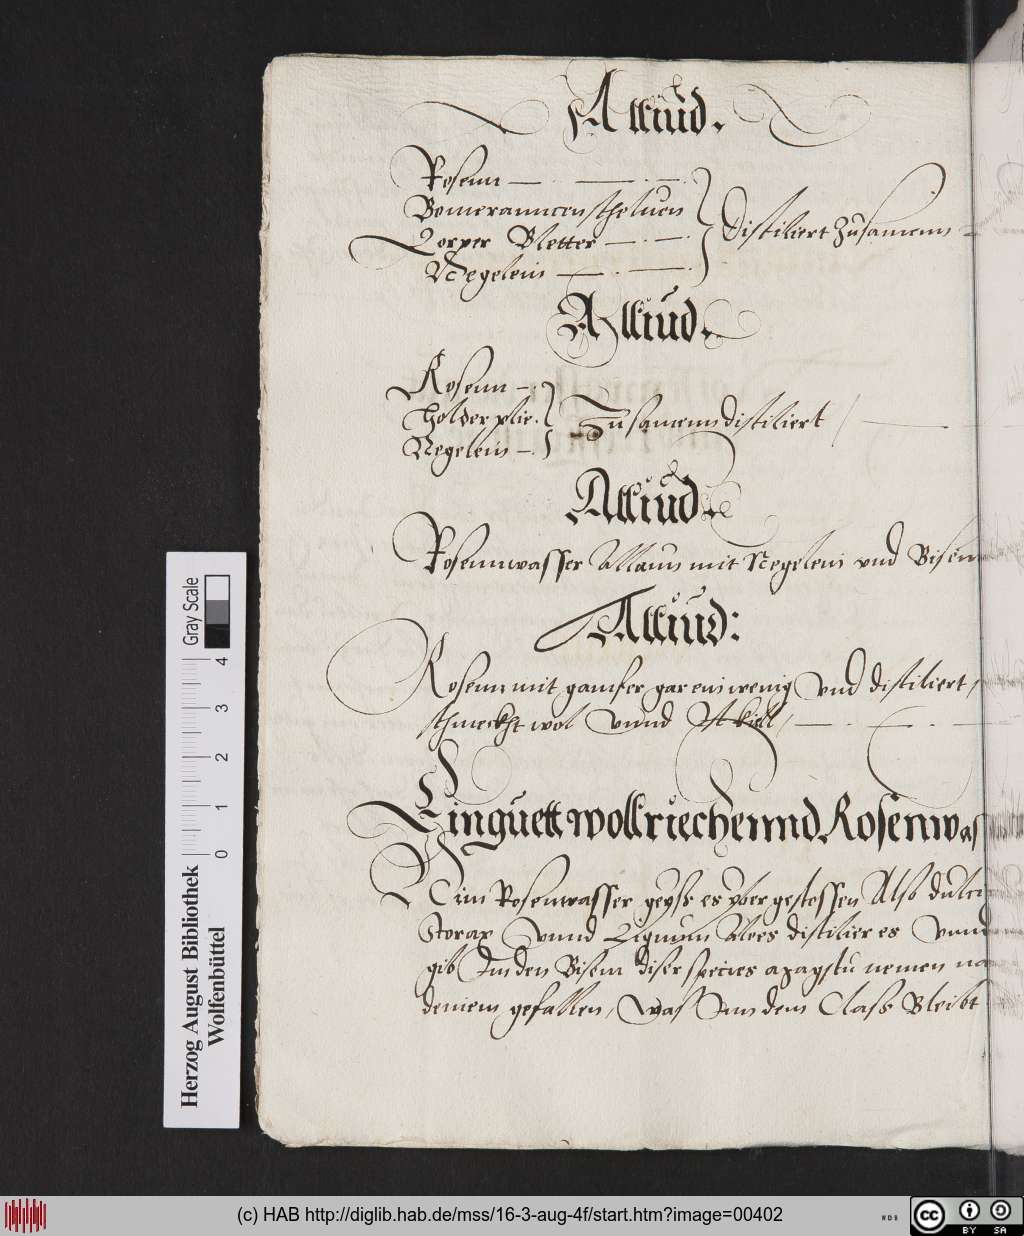 Alliud.
Rosenn
Bomeranncenscheluen
Lorper Bletter
Negelein
Distiliert Zusamenn
Alliud.
Rosenn
holderplie
Negelein
Zusamenn distiliert
Alliud.
Rosennwasser Allaun mit Negelein vnd Bisem
Alliud:
Rosenn mit gamfer gar ein wenig vnd distiliert,
schmeckht wol vnnd ist kiel,
Ein guett wollriechennnd Rosenwas
Nim Rosenwasser geuss es yber gestossen Also
Storax vnnd Lignum Aloes distilier es vnnd
gib Im den Bisem diser species magstu nemen
deinem gefallen, was Inn dem Glass Bleibt
Gray Scale
4
3
2
1
0
Herzog August Bibliothek
Wolfenbüttel
(c) HAB http://diglib.hab.de/mss/16-3-aug-4f/start.htm?image=00402
cc
BY SA